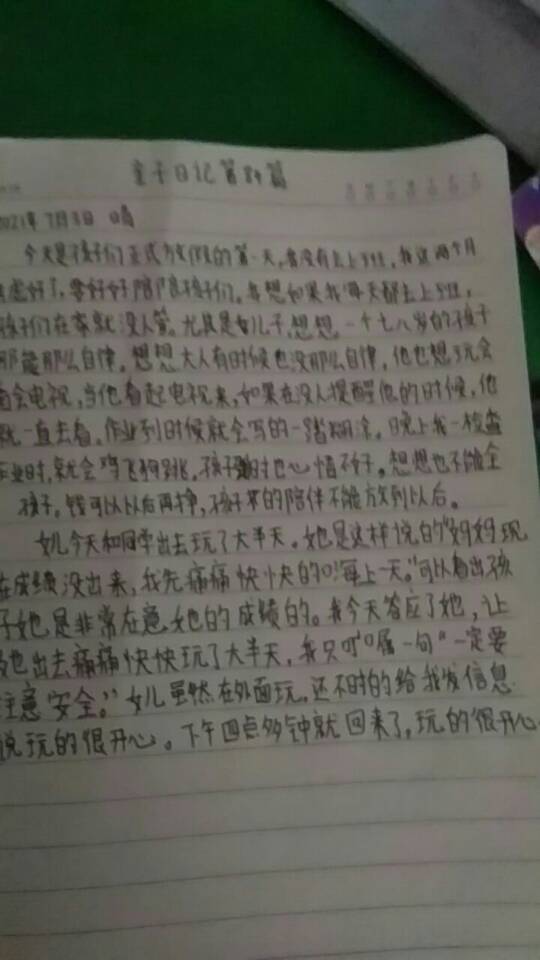 亲子日记第84篇
2021年7月3日 晴
今天是孩子们正式放假的第一天,我没有去上班,我这两个月
考虑好了,要好好陪陪孩子们。我想如果我每天都去上班,
孩子们在家就没人管。尤其是女儿子,想想,一个七八岁的孩子
那能那么自律。想想大人有时候也没那么自律,他也想玩会
看会电视,当他看起电视来,如果在没人提醒他的时候,他
就一直去看。作业到时候就会写的一踏糊涂。晚上我一检查
作业时,就会鸡飞狗跳。孩子到时也心情不好。想想也不能全
孩子,钱可以以后再挣,孩子的陪伴不能放到以后。
女儿今天和同学出去玩了大半天。她是这样说的"妈妈现
在成绩没出来,我先痛痛快快的玩上一天。"可以看出孩
子她是非常在意她的成绩的。我今天答应了她,让
她出去痛痛快快玩了大半天,我只叮嘱一句"一定要
注意安全。"女儿虽然在外面玩,还不时的给我发信息
说玩的很开心。下午四点多钟就回来了,玩的很开心